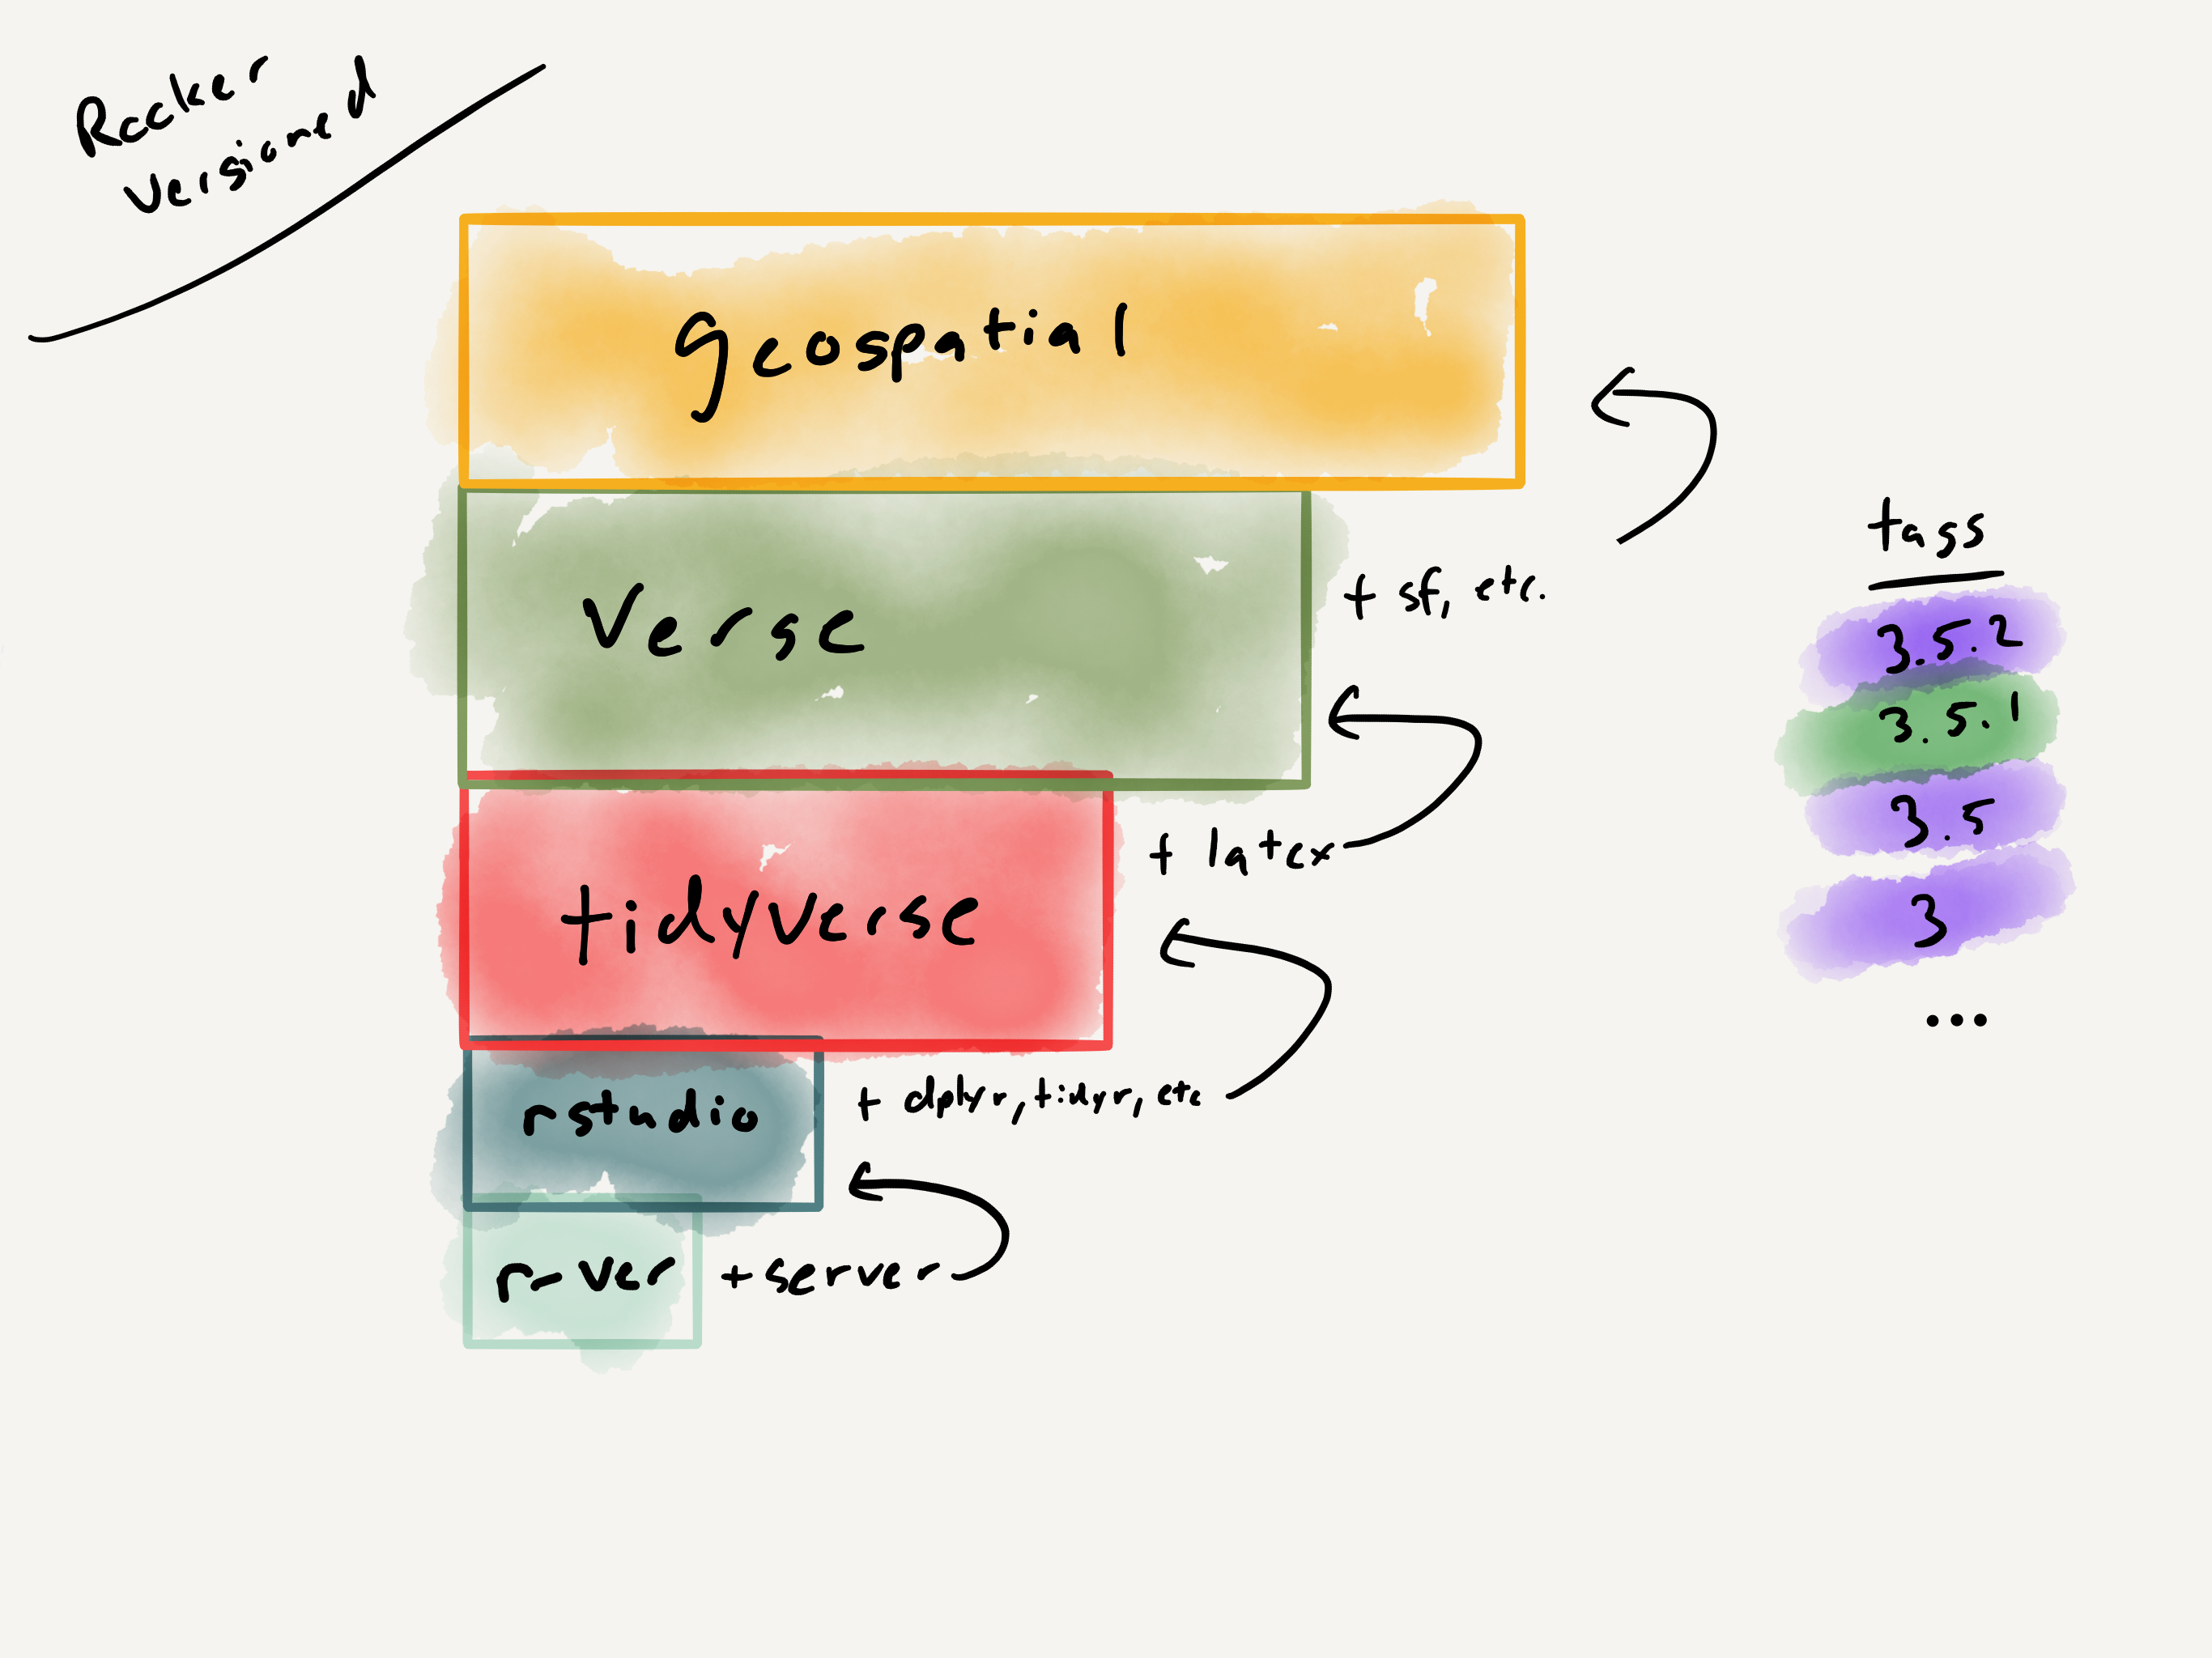 Rocker
Versioned
geospatial
Verse
+ sf, etc.
tidyverse
+ latex
rstudio
+ dplyr, tidyr, etc
r-ver
+ server
tags
3.5.2
3.5.1
3.5
3
...